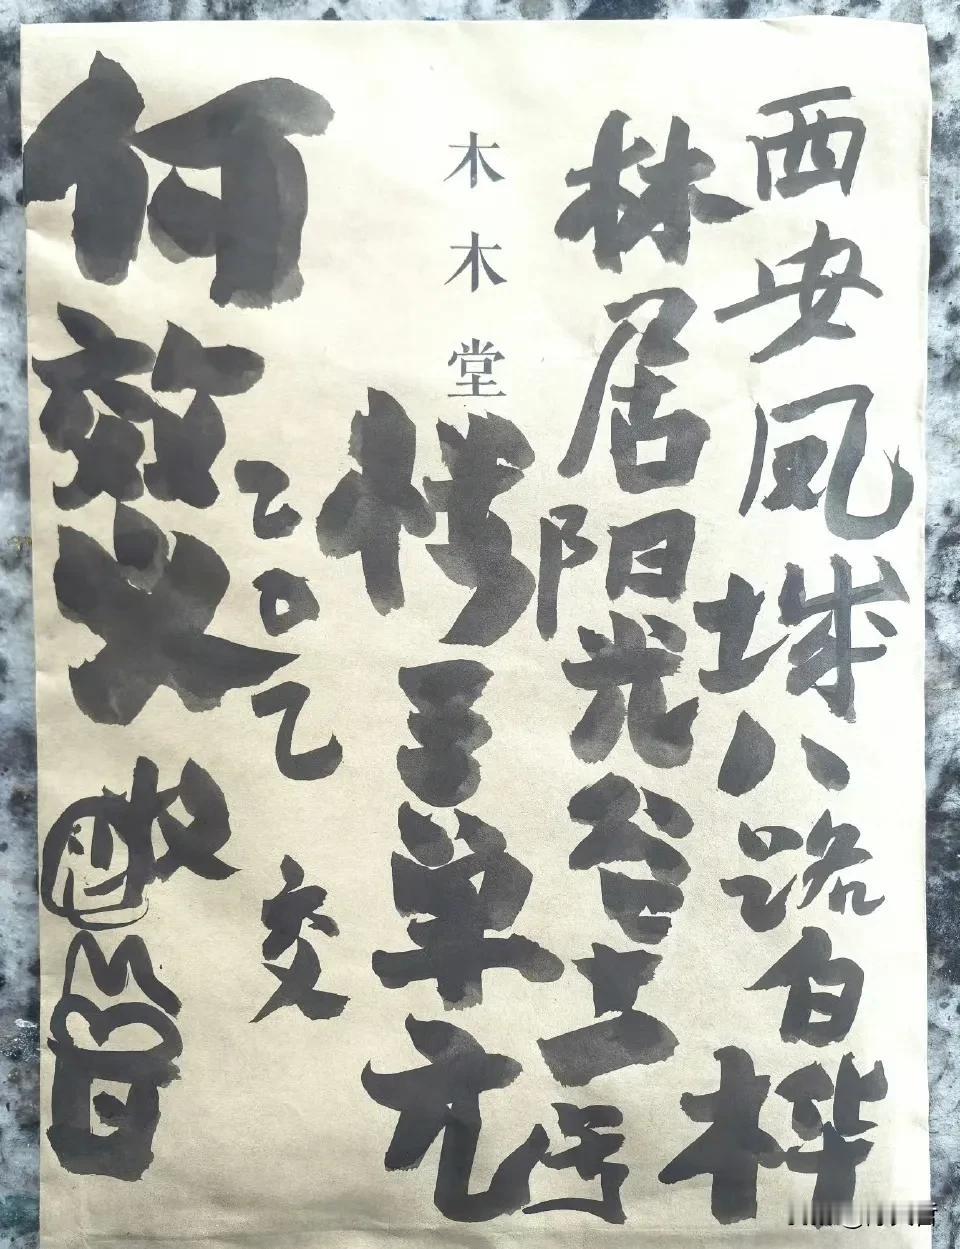 西安凤城八路白桦
林居阳光谷十一号
木木堂
楼三单元
二〇二
交
何效义收